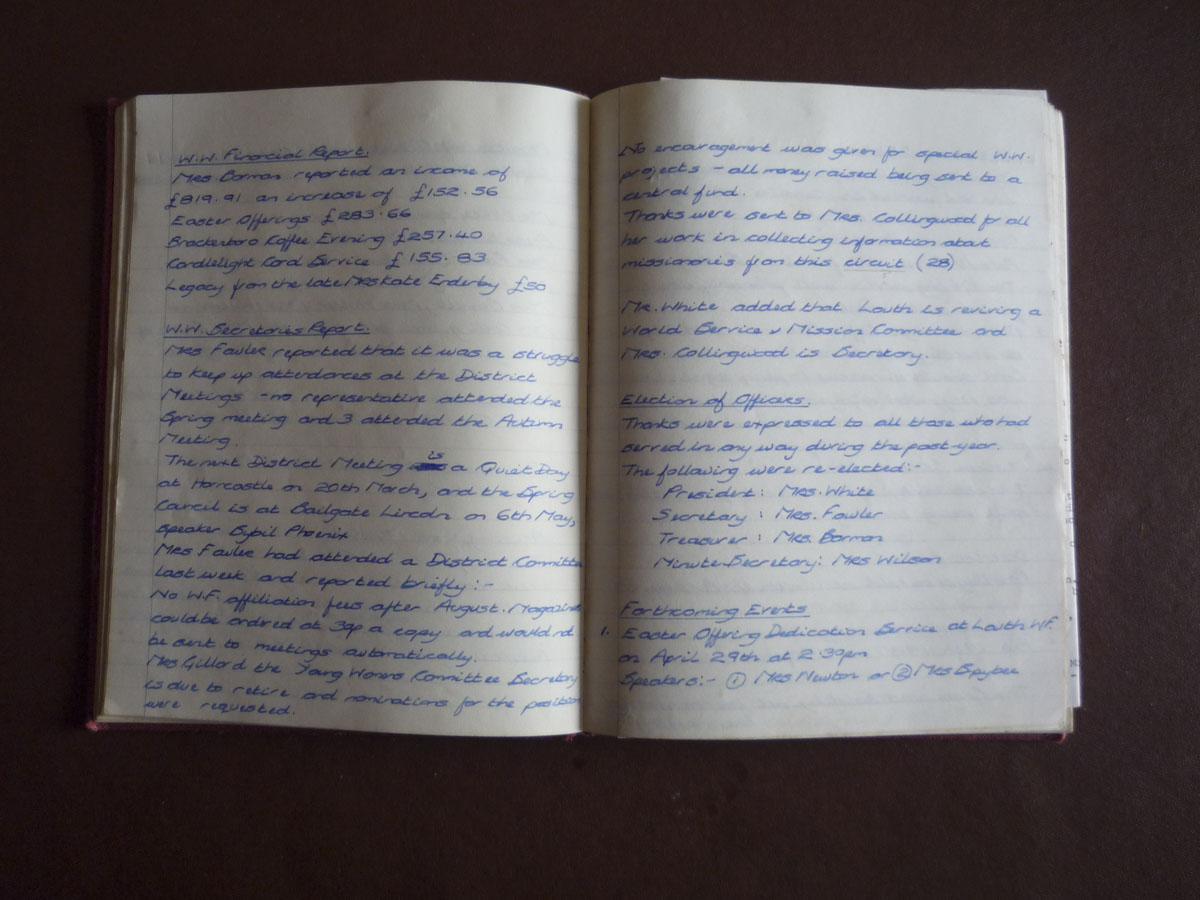 W.W. Financial Report.
Mrs Borman reported an income of
£819.91 an increase of £152.56
Easter Offerings £283.66
Brackenboro Koffee Evening £257.40
Candlelight Carol Service £155.83
Legacy from the late Mrs Kate Enderby £50
W.W. Secretaries Report.
Mrs Fowler reported that it was a struggle
to keep up attendances at the District
Meetings - no representative attended the
Spring meeting and 3 attended the Autumn
Meeting.
The next District Meeting is a Quiet Day
at Horncastle on 20th March, and the Spring
Council is at Bailgate Lincoln on 6th May,
speaker Sybil Phoenix
Mrs Fowler had attended a District Committee
last week and reported briefly :-
No W.F. affiliation fees after August. Magazines
could be ordered at 30p a copy and would not
be sent to meetings automatically.
Mrs Gillard the Young Womens Committee Secretary
is due to retire and nominations for the position
were requested.
No encouragement was given for special W.W.
projects - all money raised being sent to a
central fund.
Thanks were sent to Mrs. Collingwood for all
her work in collecting information about
missionaries from this circuit (28)
Mr. White added that Louth is reviving a
World Service & Mission Committee and
Mrs. Collingwood is Secretary.
Election of Officers.
Thanks were expressed to all those who had
served in any way during the past year.
The following were re-elected:-
President: Mrs. White
Secretary : Mrs. Fowler
Treasurer : Mrs. Borman
Minute Secretary: Mrs Wilson
Forthcoming Events
1. Easter Offering Dedication Service at Louth W.F.
on April 29th at 2.30pm
Speakers:- ① Mrs Newton or ② Mrs Spybee